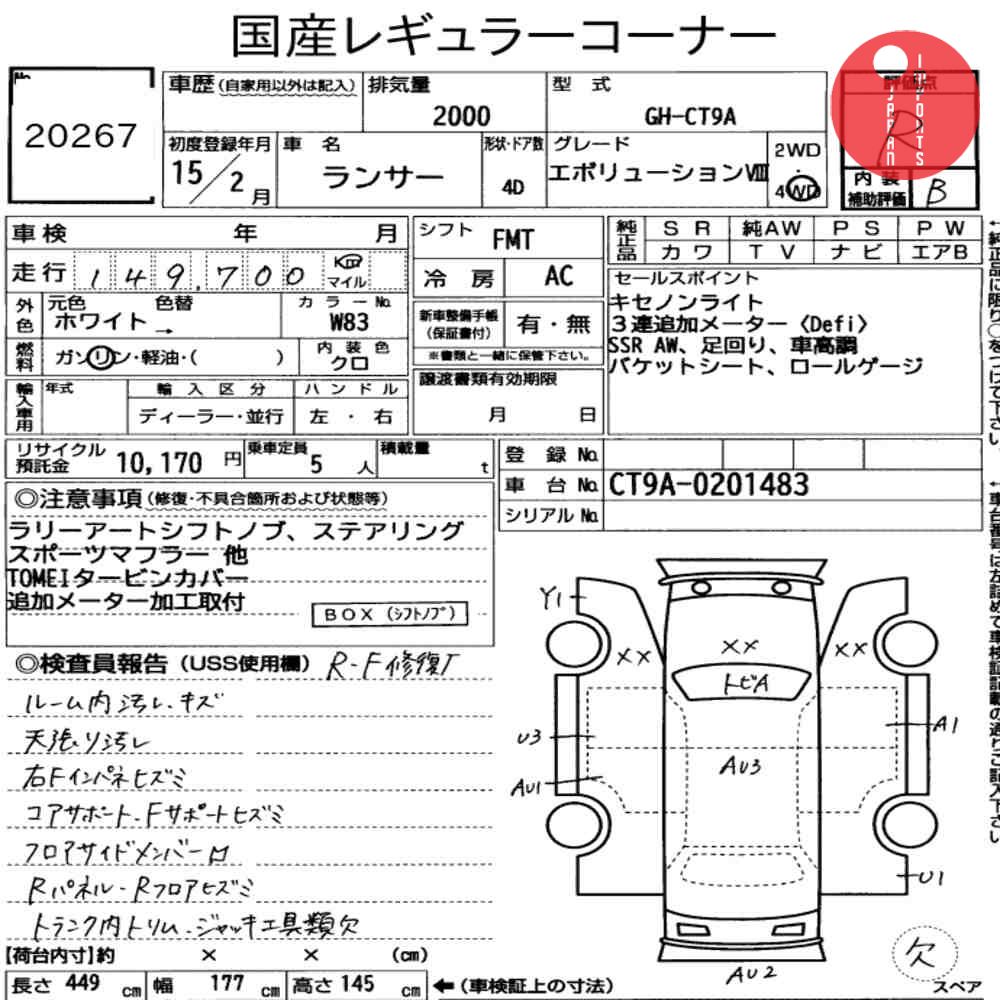 国産レギュラーコーナー
JAPAN IMPORTS
No.
20267
車歴(自家用以外は記入)
排気量
2000
型 式
GH-CT9A
評価点
R
初度登録年月
15/2月
車 名
ランサー
形状・ドア数
4D
グレード
エボリューションⅧ
2WD
4WD
内装
補助評価
B
車検 年 月
走行 149,700 Km マイル
シフト FMT
冷房 AC
純正品
SR 純AW PS PW
カワ TV ナビ エアB
外色
元色 色替
ホワイト →
カラーNo.
W83
新車整備手帳
(保証書付)
有・無
※書類と一緒に保管下さい。
セールスポイント
キセノンライト
3連追加メーター〈Defi〉
SSR AW、足回り、車高調
バケットシート、ロールゲージ
燃料
ガソリン・軽油・( )
内装色
クロ
輸入車用
年式
輸入区分
ディーラー・並行
ハンドル
左・右
譲渡書類有効期限
月 日
リサイクル
預託金
10,170 円
乗車定員
5 人
積載量
t
登録 No.
車台 No. CT9A-0201483
シリアル No.
◎注意事項(修復・不具合箇所および状態等)
ラリーアートシフトノブ、ステアリング
スポーツマフラー 他
TOMEIタービンカバー
追加メーター加工取付
BOX (シフトノブ)
◎検査員報告 (USS使用欄) R-F修復了
ルーム内汚レ、キズ
天張り汚レ
右Fインパネヒズミ
コアサポート、Fサポートヒズミ
フロアサイドメンバー凹
Rパネル-Rフロアヒズミ
トランク内トリム、ジャッキ工具類欠
Y1
XX
XX
XX
トビA
U3
AU1
AU3
A1
U1
AU2
欠
スペア
【荷台内寸】約 × × (cm)
長さ 449 cm 幅 177 cm 高さ 145 cm ←(車検証上の寸法)
←純正品に限り○をつけて下さい。
←車台番号は左詰めで車検証記載の通りご記入下さい